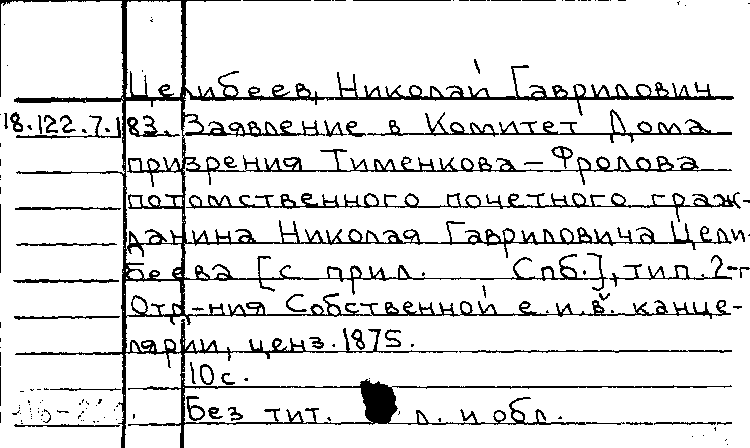 Целибеев, Николай Гаврилович
18.122.7.183. Заявление в Комитет Дома
призрения Тименкова-Фролова
потомственного почетного граж-
данина Николая Гавриловича Цели-
беева [с прил. Спб.], тип. 2-г
Отд-ния Собственной е.и.в. канце-
лярии, ценз. 1875.
10с.
Без тит. л. и обл.